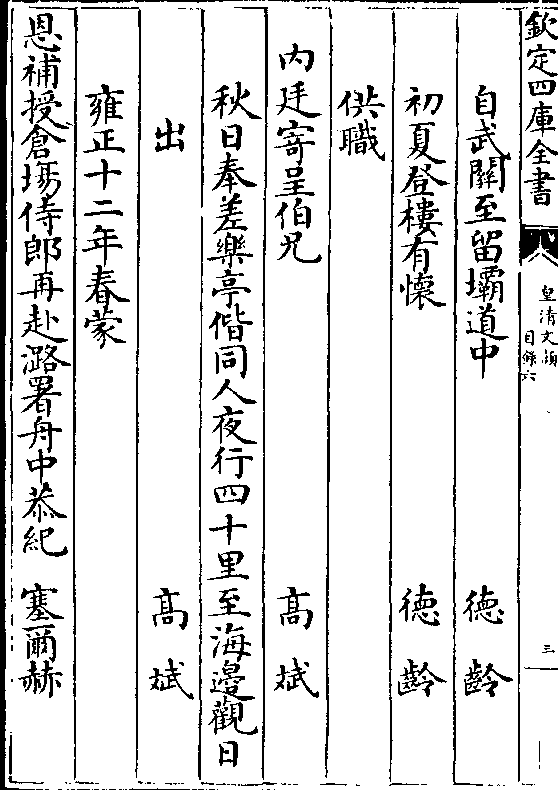 欽定四庫全書
皇清文穎
目錄六
三
自武關至留壩道中 德齡
初夏登樓有懷 德齡
供職
内廷寄呈伯兄 高斌
秋日奉差樂亭偕同人夜行四十里至海邊觀日
出 高斌
雍正十二年春蒙
恩補授倉場侍郎再赴潞署舟中恭紀 塞爾赫